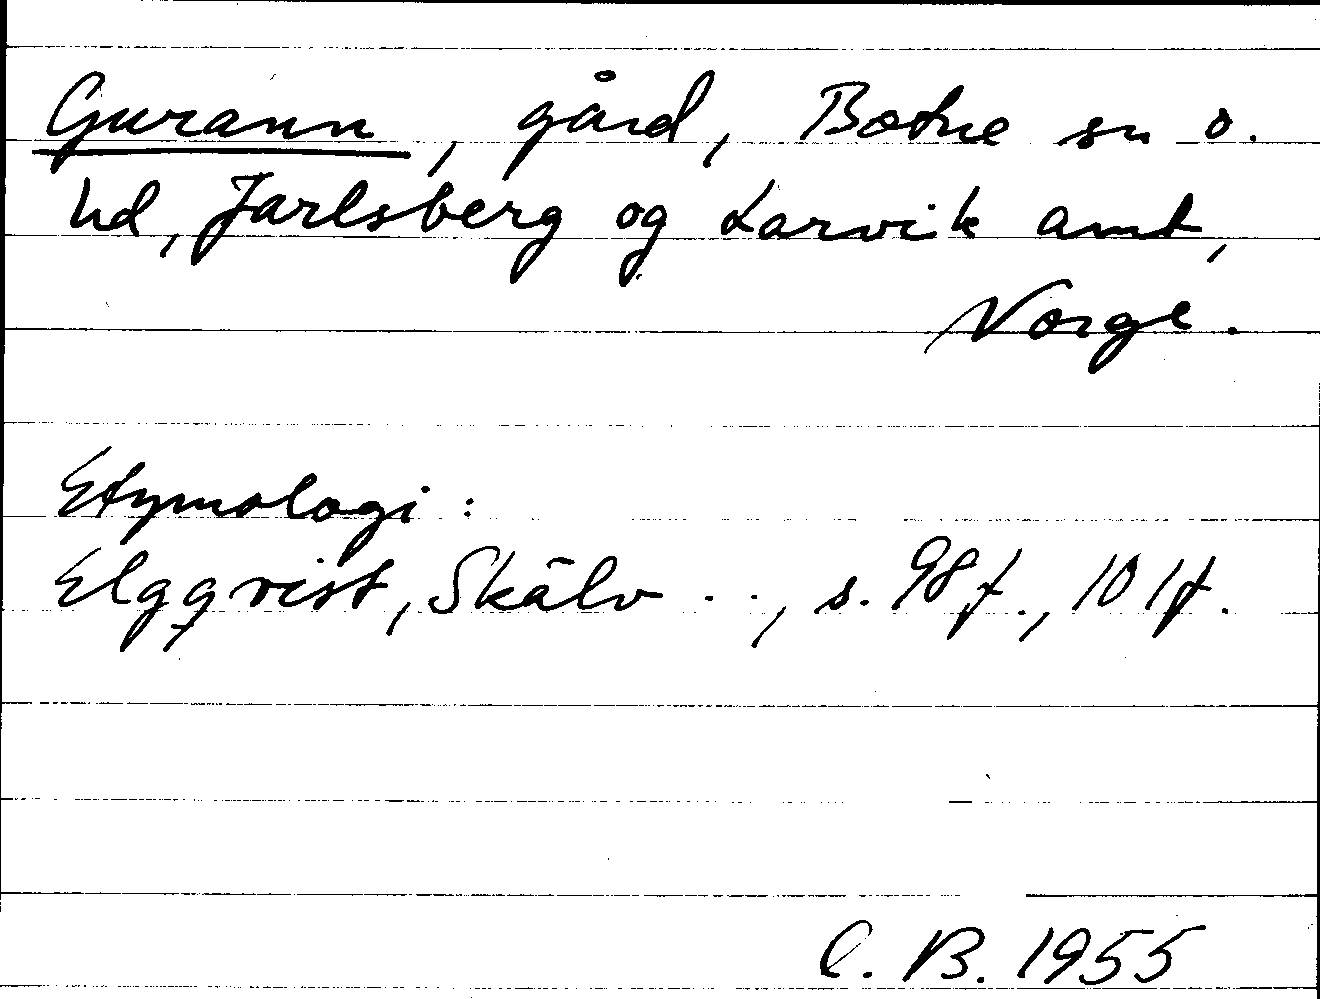 Gurann, gård, Botne sn o.
hd, Jarlsberg og Larvik amt,
Norge.
Etymologi:
Elgqvist, Skälv . ., s. 98 f., 101 f.
C. B. 1955